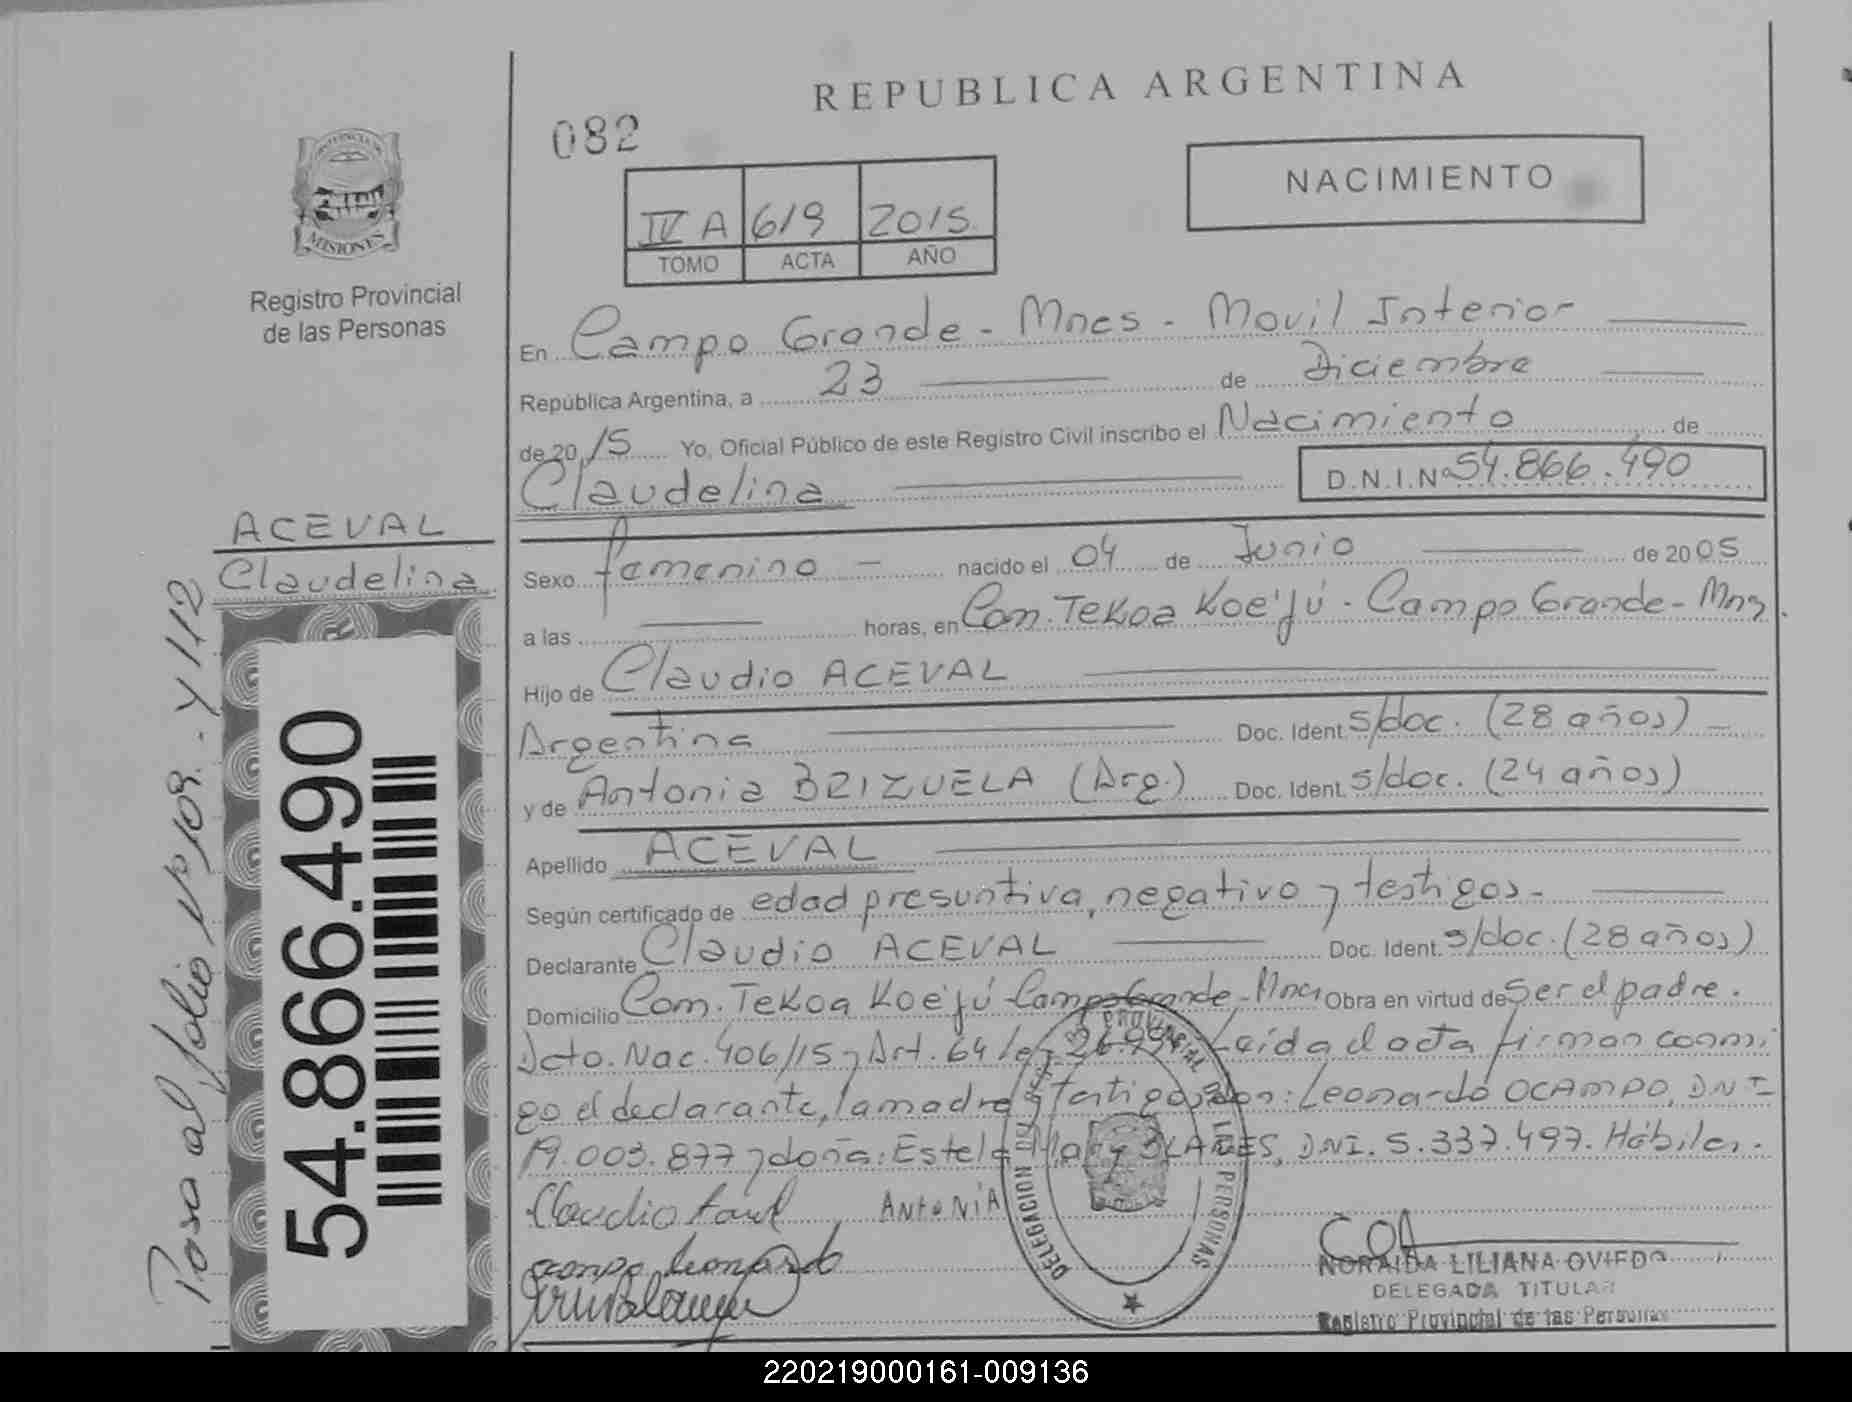 REPUBLICA ARGENTINA
082
NACIMIENTO
IV A 619 2015
TOMO ACTA AÑO
PROVINCIA DE
MISIONES
Registro Provincial
de las Personas
En Campo Grande - Mnes - Movil Interior
República Argentina, a 23 de Diciembre
de 20 15 Yo, Oficial Público de este Registro Civil inscribo el Nacimiento de
Claudelina D.N.I.Nº 54.866.490
ACEVAL
Claudelina
Sexo femenino - nacido el 04 de Junio de 20 05
a las horas, en Com. Tekoa Koe'jú - Campo Grande - Mns.
Hijo de Claudio ACEVAL
Argentina Doc. Ident. s/doc. (28 años)
y de Antonia BRIZUELA (Arg.) Doc. Ident. s/doc. (24 años)
Apellido ACEVAL
Según certificado de edad presuntiva, negativo y testigos -
Declarante Claudio ACEVAL Doc. Ident. s/doc. (28 años)
Domicilio Com. Tekoa Koe'jú Campo Grande - Mnes Obra en virtud de Ser el padre.
Dcto. Nac. 406/15 y Art. 64 ley 26.994 Leída el acta firman conmi
go el declarante, la madre y testigos don: Leonardo OCAMPO, DNI
19.003.877 y doña: Estela BLANES, DNI. 5.337.497. Hábiles.
Claudio ANTONIA
ocampo leonardo
NORAIDA LILIANA OVIEDO
DELEGADA TITULAR
Registro Provincial de las Personas
DELEGACION DEL REG. PROVINCIAL DE LAS PERSONAS
54.866.490
Pasa al folio Nº 109.- y 112
220219000161-009136